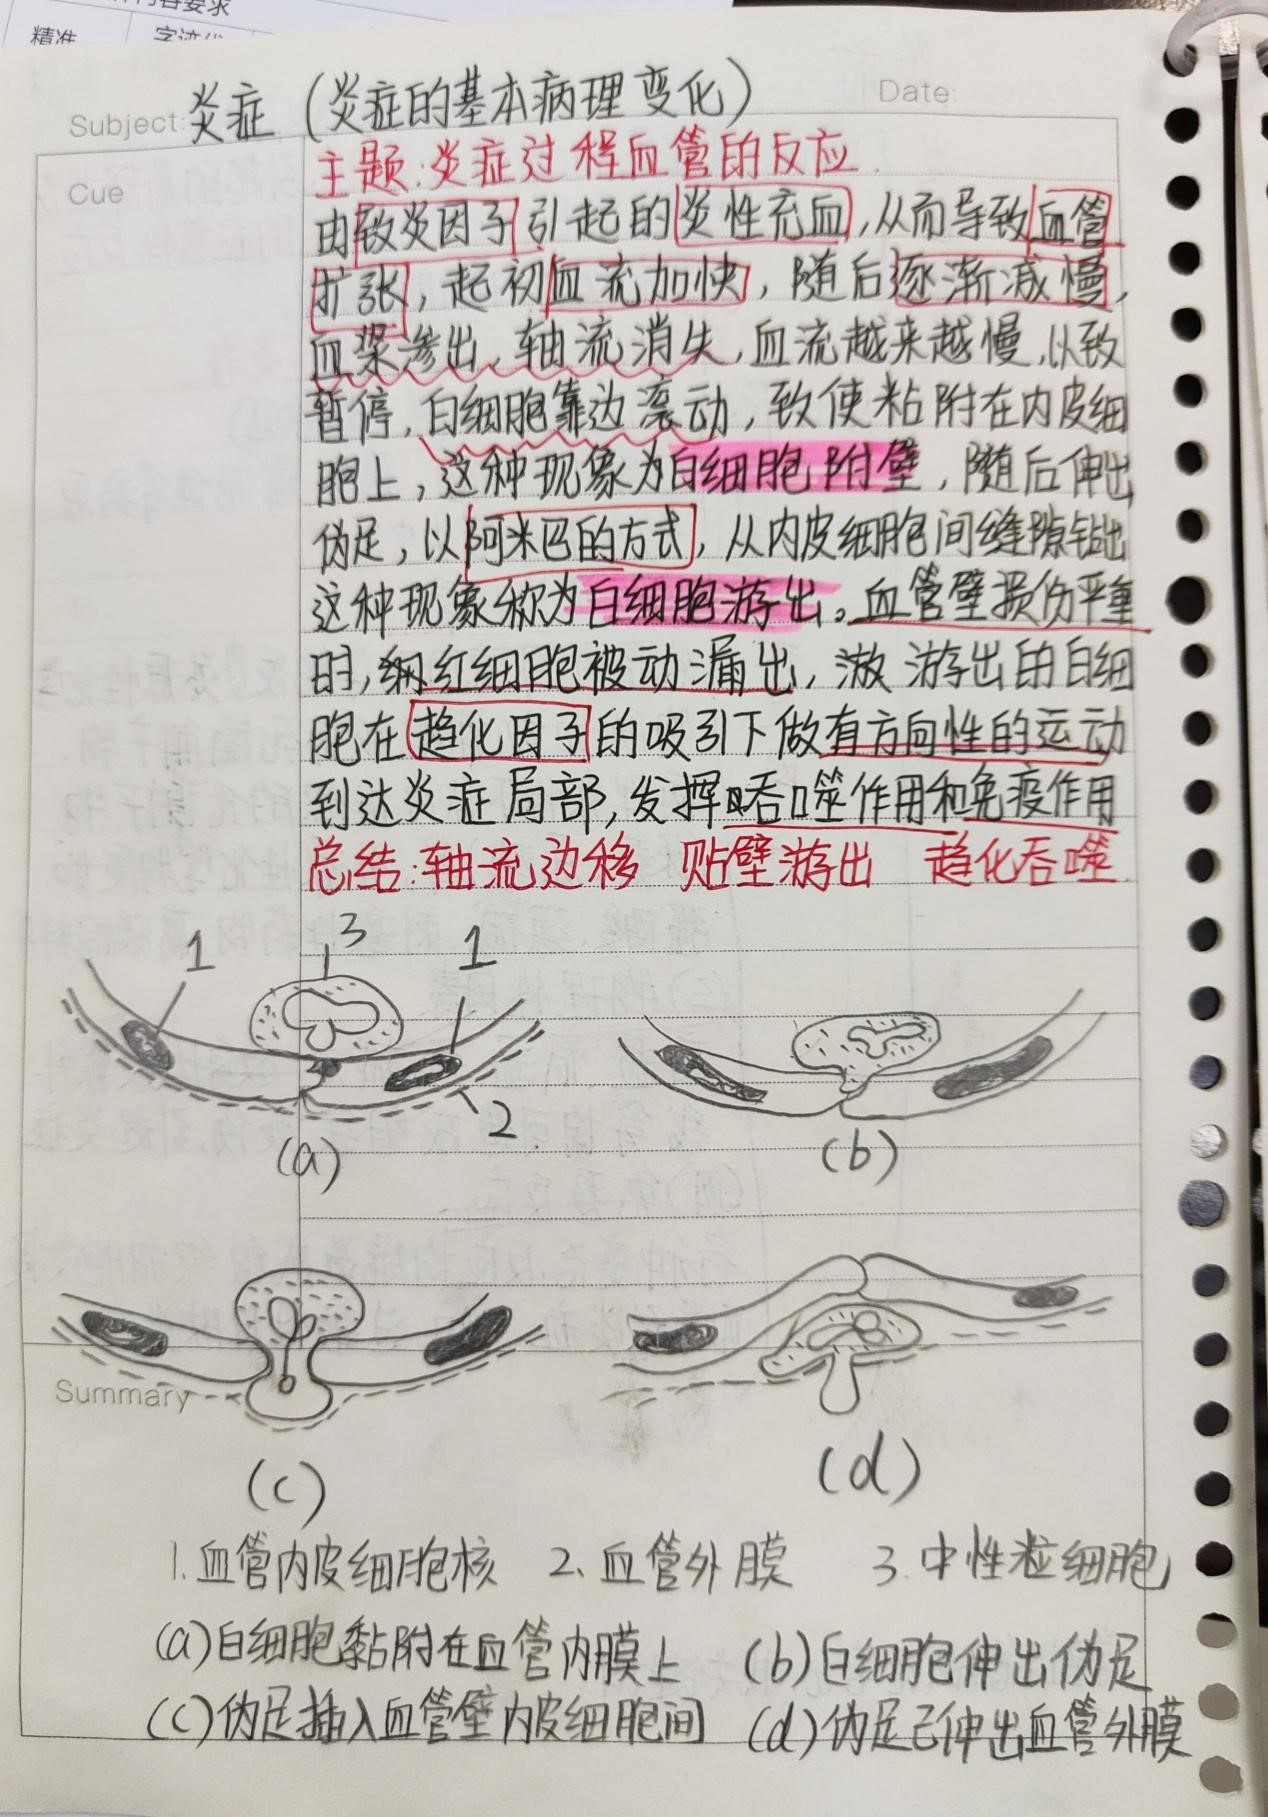 内容要求
精准
Subject: 炎症（炎症的基本病理变化）
Date:
Cue
主题:炎症过程血管的反应.
由致炎因子引起的炎性充血,从而导致血管
扩张，起初血流加快，随后逐渐减慢,
血浆渗出、轴流消失,血流越来越慢,以致
暂停,白细胞靠边滚动，致使粘附在内皮细
胞上，这种现象为白细胞附壁，随后伸出
伪足，以阿米巴的方式，从内皮细胞间缝隙钻出
这种现象称为白细胞游出。血管壁损伤严重
时,红细胞被动漏出，游出的白细
胞在趋化因子的吸引下做有方向性的运动
到达炎症局部,发挥吞噬作用和免疫作用
总结:轴流边移 贴壁游出 趋化吞噬.
1 3 1
2
(a) (b)
Summary
(c) (d)
1.血管内皮细胞核 2、血管外膜 3.中性粒细胞
(a)白细胞黏附在血管内膜上 (b)白细胞伸出伪足
(c)伪足插入血管壁内皮细胞间 (d)伪足已伸出血管外膜